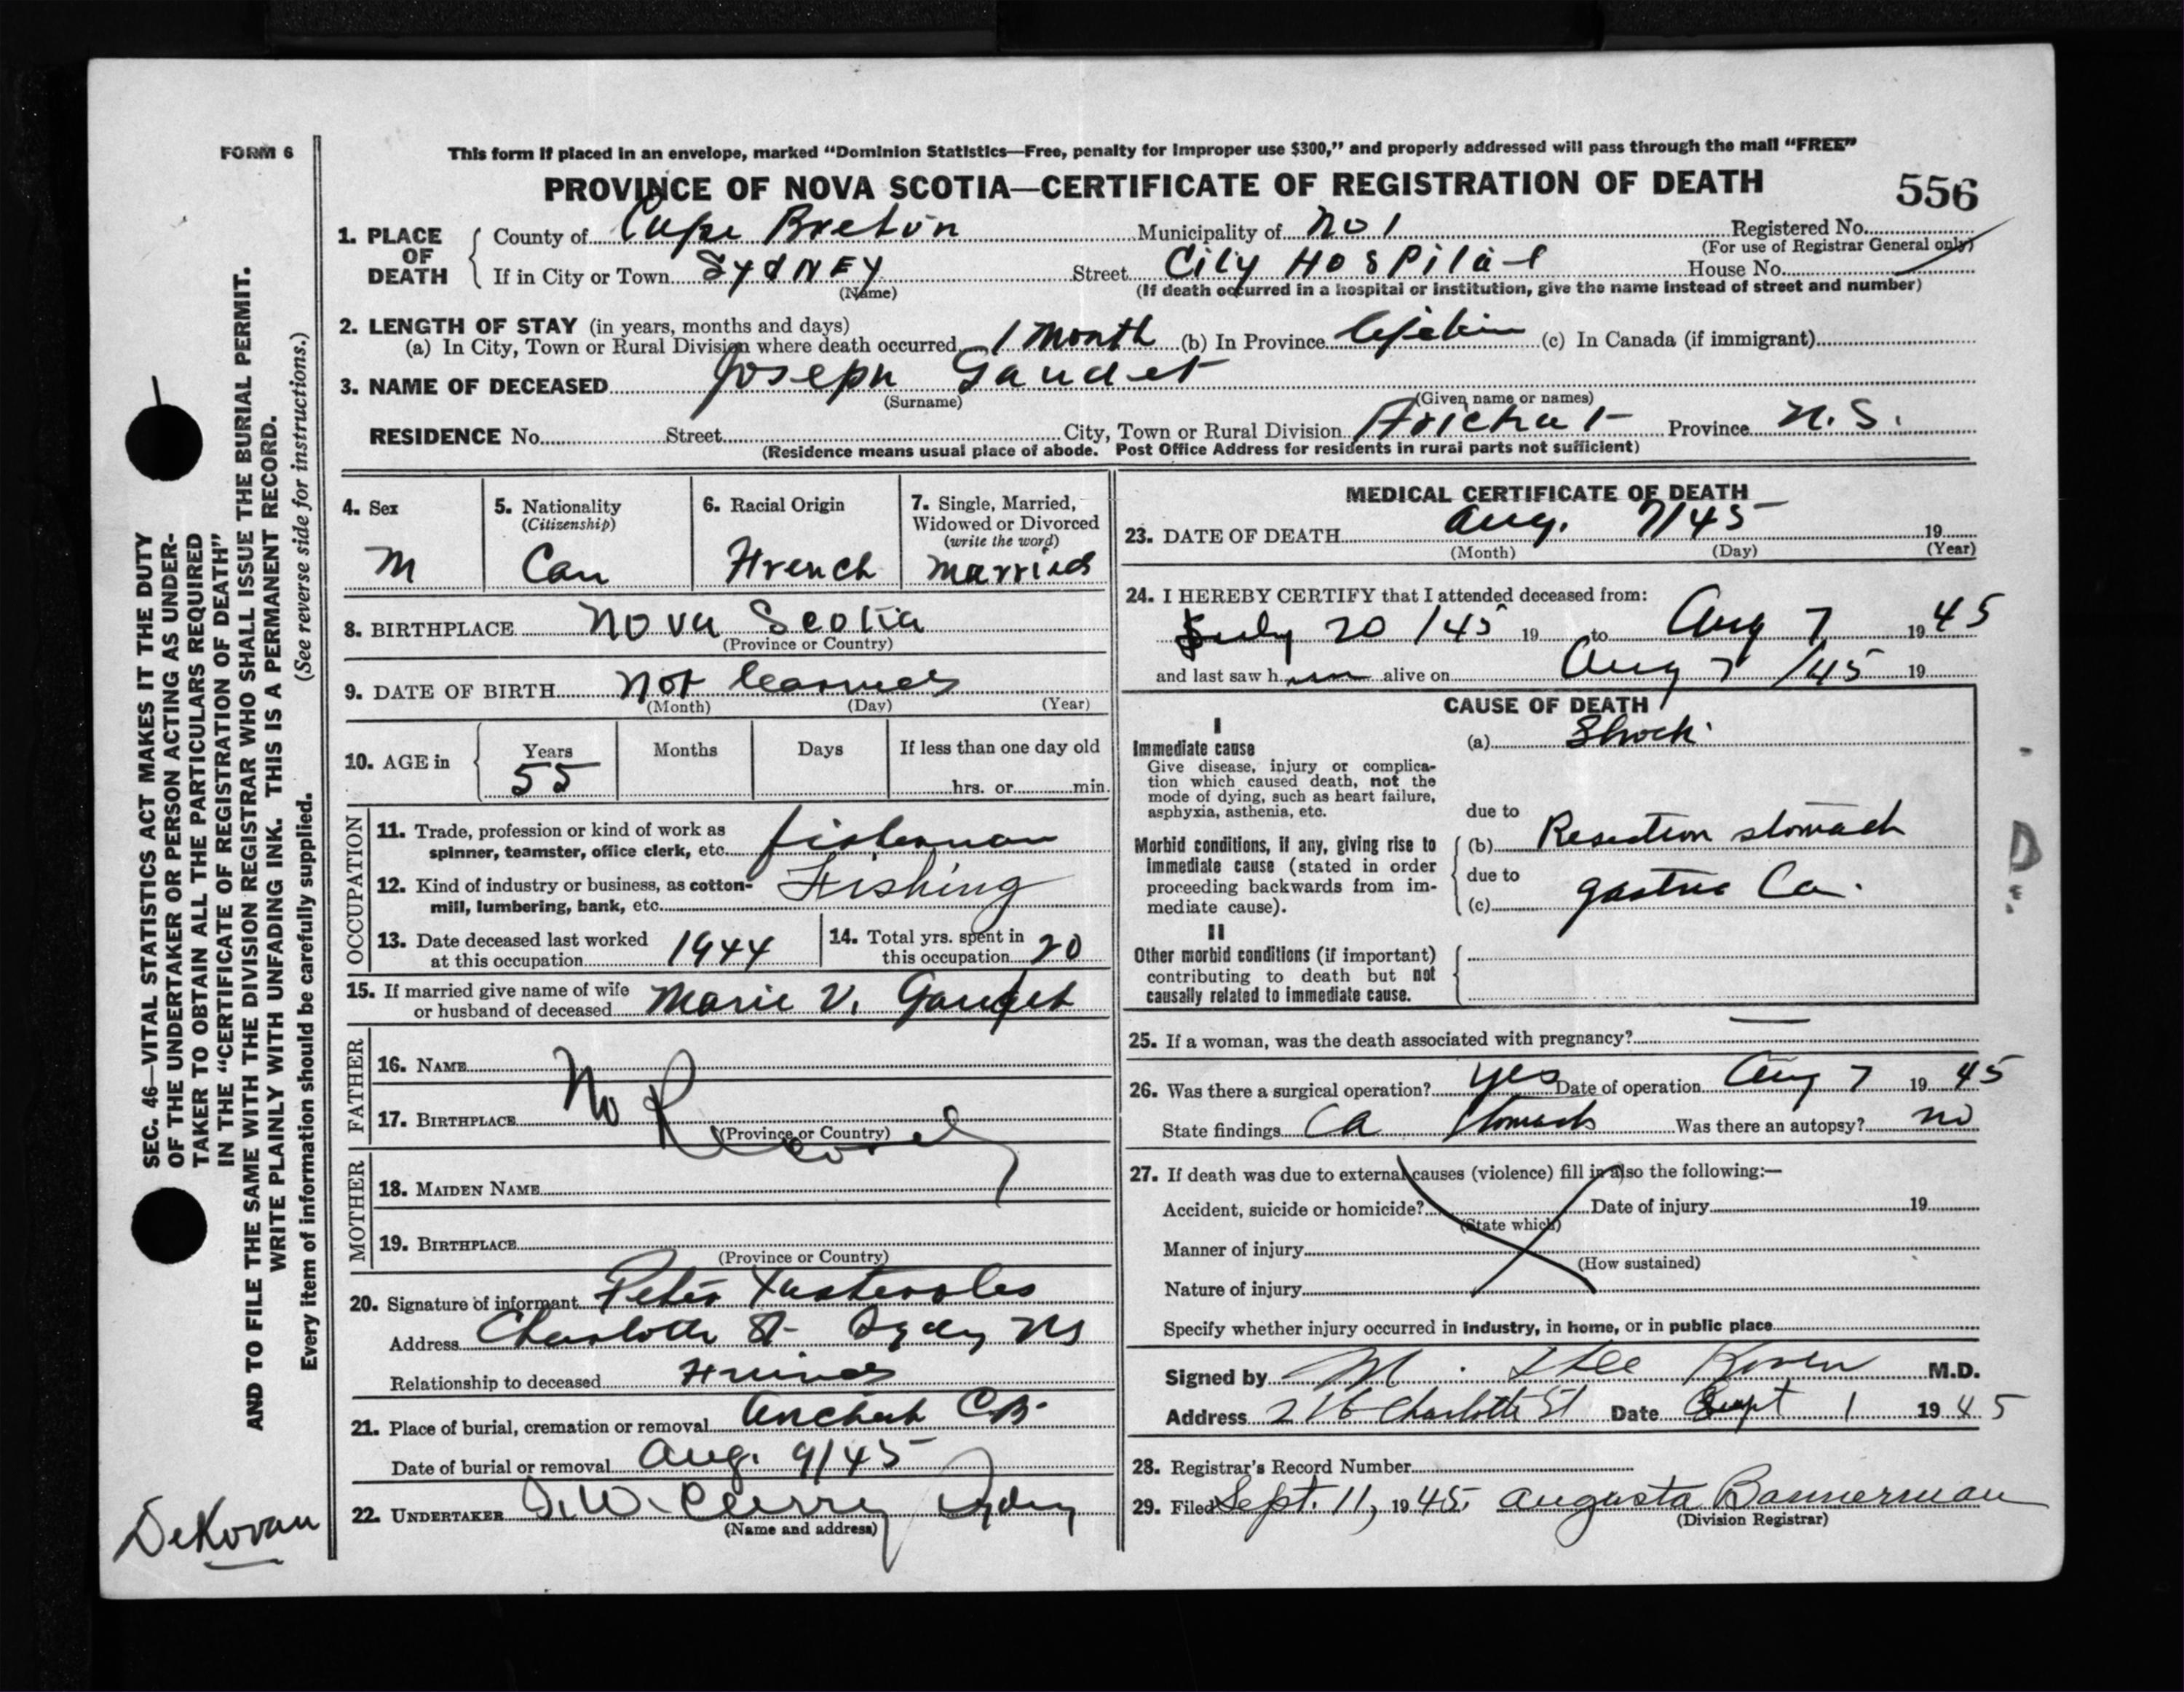 FORM 6
This form if placed in an envelope, marked “Dominion Statistics—Free, penalty for improper use $300,” and properly addressed will pass through the mail “FREE”
PROVINCE OF NOVA SCOTIA—CERTIFICATE OF REGISTRATION OF DEATH
556
1. PLACE OF DEATH
County of Cape Breton Municipality of No 1 Registered No.
(For use of Registrar General only)
If in City or Town SYDNEY Street City HOSPital House No.
(Name) (If death occurred in a hospital or institution, give the name instead of street and number)
2. LENGTH OF STAY (in years, months and days)
(a) In City, Town or Rural Division where death occurred 1 month (b) In Province (c) In Canada (if immigrant)
3. NAME OF DECEASED Joseph Gaudet
(Surname) (Given name or names)
RESIDENCE No. Street City, Town or Rural Division Arichat Province N.S.
(Residence means usual place of abode. Post Office Address for residents in rural parts not sufficient)
4. Sex
M
5. Nationality
(Citizenship)
Can
6. Racial Origin
French
7. Single, Married,
Widowed or Divorced
(write the word)
married
8. BIRTHPLACE Nova Scotia
(Province or Country)
9. DATE OF BIRTH Not learned
(Month) (Day) (Year)
10. AGE in
Years Months Days If less than one day old
55 hrs. or min.
OCCUPATION
11. Trade, profession or kind of work as
spinner, teamster, office clerk, etc. fisherman
12. Kind of industry or business, as cotton-
mill, lumbering, bank, etc. Fishing
13. Date deceased last worked
at this occupation 1944
14. Total yrs. spent in
this occupation 20
15. If married give name of wife
or husband of deceased Marie V. Gaudet
FATHER
16. NAME
17. BIRTHPLACE
(Province or Country)
No Record
MOTHER
18. MAIDEN NAME
19. BIRTHPLACE
(Province or Country)
20. Signature of informant Peter
Address Charlotte St Sydney NS
Relationship to deceased Friend
21. Place of burial, cremation or removal Arichat C.B.
Date of burial or removal Aug. 9/45
22. UNDERTAKER T.W. Curry Sydney
(Name and address)
MEDICAL CERTIFICATE OF DEATH
23. DATE OF DEATH Aug. 7/45 19
(Month) (Day) (Year)
24. I HEREBY CERTIFY that I attended deceased from:
July 20/45 19 to Aug 7 1945
and last saw him alive on Aug 7/45 19
CAUSE OF DEATH
I
Immediate cause
Give disease, injury or complica-
tion which caused death, not the
mode of dying, such as heart failure,
asphyxia, asthenia, etc.
(a) Shock
due to
Morbid conditions, if any, giving rise to
immediate cause (stated in order
proceeding backwards from im-
mediate cause).
(b) Resection stomach
due to
(c) gastric Ca.
II
Other morbid conditions (if important)
contributing to death but not
causally related to immediate cause.
25. If a woman, was the death associated with pregnancy? —
26. Was there a surgical operation? yes Date of operation Aug 7 1945
State findings Ca stomach Was there an autopsy? no
27. If death was due to external causes (violence) fill in also the following:—
Accident, suicide or homicide? Date of injury 19
(State which)
Manner of injury
(How sustained)
Nature of injury
Specify whether injury occurred in industry, in home, or in public place
Signed by M. M.D.
Address 216 Charlotte St Date Sept 1 1945
28. Registrar's Record Number
29. Filed Sept. 11, 1945. Augusta Bannerman
(Division Registrar)
SEC. 46—VITAL STATISTICS ACT MAKES IT THE DUTY
OF THE UNDERTAKER OR PERSON ACTING AS UNDER-
TAKER TO OBTAIN ALL THE PARTICULARS REQUIRED
IN THE “CERTIFICATE OF REGISTRATION OF DEATH”
AND TO FILE THE SAME WITH THE DIVISION REGISTRAR WHO SHALL ISSUE THE BURIAL PERMIT.
WRITE PLAINLY WITH UNFADING INK. THIS IS A PERMANENT RECORD.
Every item of information should be carefully supplied. (See reverse side for instructions.)
DeKovan
D